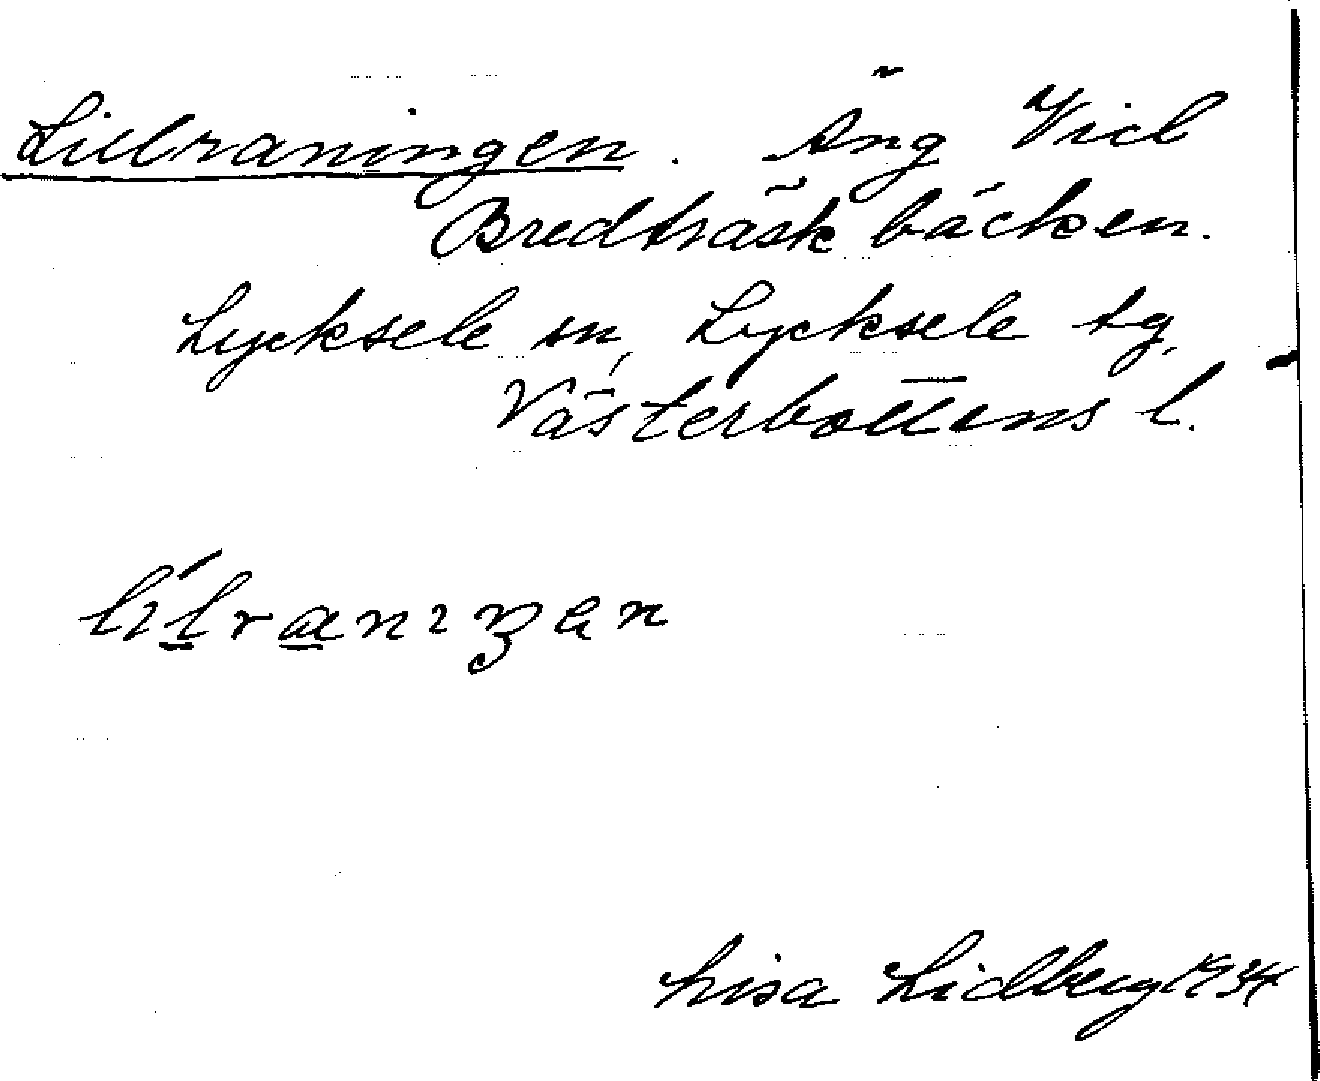 Lillraningen. Äng Vid
Bredträskbäcken.
Lycksele sn, Lycksele tg,
Västerbottens l.
Lisa Lidberg 1934